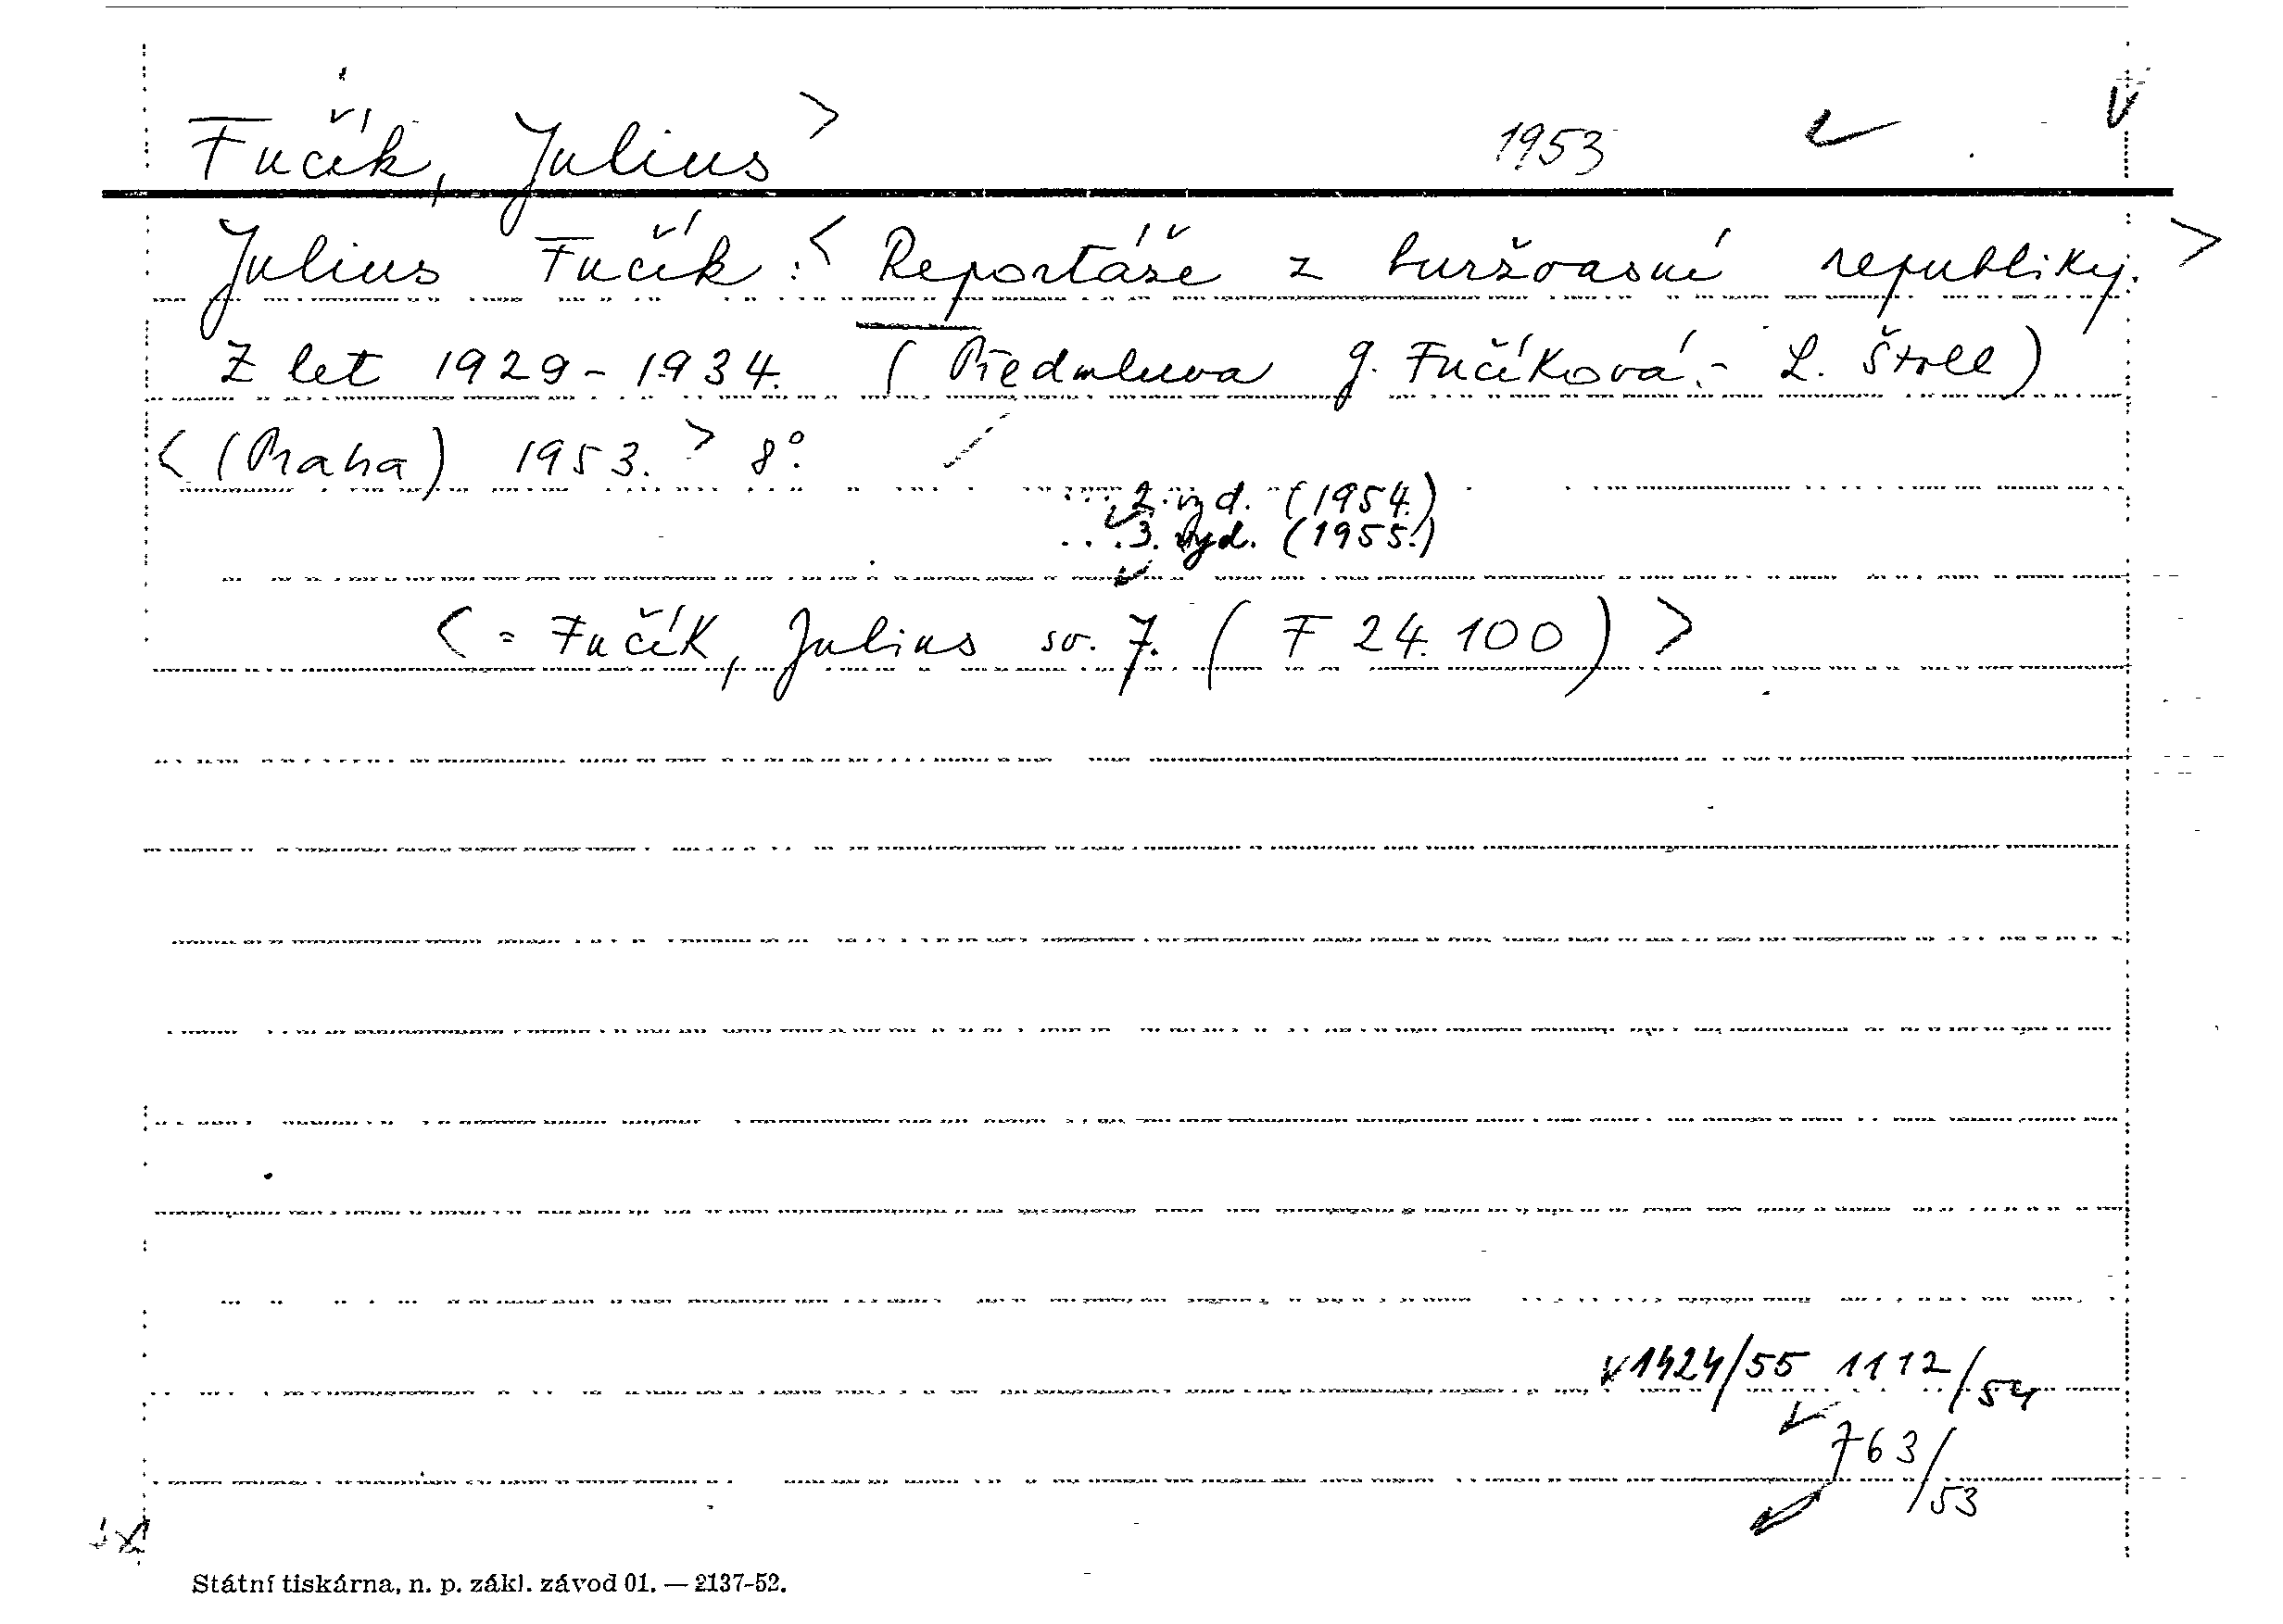 Fučík, Julius > 1953
Julius Fučík: < Reportáže z buržoasní republiky. >
Z let 1929-1934. (Předmluva G. Fučíková.- L. Štoll)
< (Praha) 1953. > 8°.
... 2. vyd. (1954.)
... 3. vyd. (1955.)
< = Fučík, Julius sv. 7. (F 24.100) >
1424/55 1112/54
763/53
Státní tiskárna, n. p. zákl. závod 01. — 2137-52.